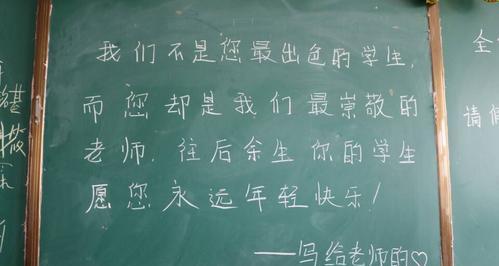 我们不是您最出色的学生,
而您却是我们最崇敬的
老师.往后余生你的学生
愿您永远年轻快乐!
——写给老师的♡
全
请